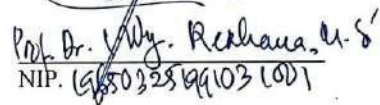 Prof. Dr. Wy. Rexhana, M.S
NIP. 196503251991031001